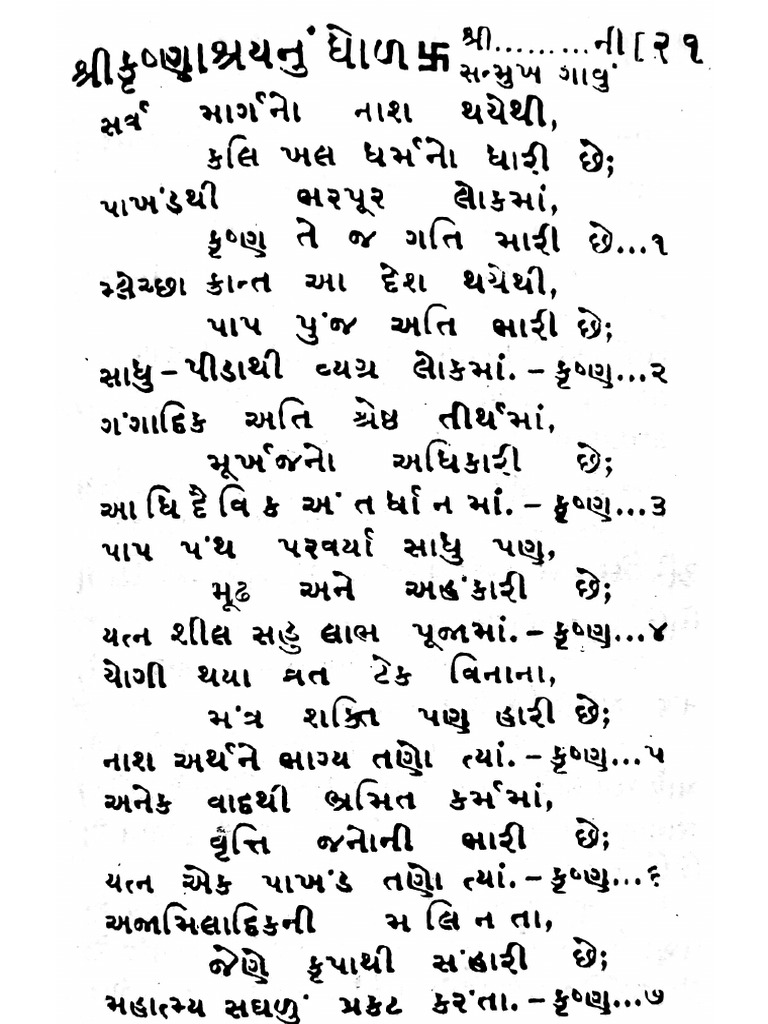 શ્રીકૃષ્ણાશ્રયનું ધોળ 卐 શ્રી.........ની [૨૧
સન્મુખ ગાવું
સર્વ માર્ગનો નાશ થયેથી,
કલિ ખલ ધર્મનો ધારી છે;
પાખંડથી ભરપૂર લોકમાં,
કૃષ્ણ તે જ ગતિ મારી છે...૧
મ્લેચ્છા ક્રાન્ત આ દેશ થયેથી,
પાપ પુંજ અતિ ભારી છે;
સાધુ-પીડાથી વ્યગ્ર લોકમાં.-કૃષ્ણ...૨
ગંગાદિક અતિ શ્રેષ્ઠ તીર્થમાં,
મૂર્ખજનો અધિકારી છે;
આધિદૈવિક અંતર્ધાનમાં.-કૃષ્ણ...૩
પાપ પંથ પરવર્યા સાધુ પણ,
મૂઢ અને અહંકારી છે;
યત્ન શીલ સહુ લાભ પૂજામાં.-કૃષ્ણ...૪
યોગી થયા વ્રત ટેક વિનાના,
મંત્ર શક્તિ પણ હારી છે;
નાશ અર્થને ભાગ્ય તણો ત્યાં.-કૃષ્ણ...૫
અનેક વાદથી ભ્રમિત કર્મમાં,
વૃત્તિ જનોની ભારી છે;
યત્ન એક પાખંડ તણો ત્યાં.-કૃષ્ણ...૬
અજામિલાદિકની મલિનતા,
જેણે કૃપાથી સંહારી છે;
મહાત્મ્ય સઘળું પ્રકટ કરંતા.-કૃષ્ણ...૭